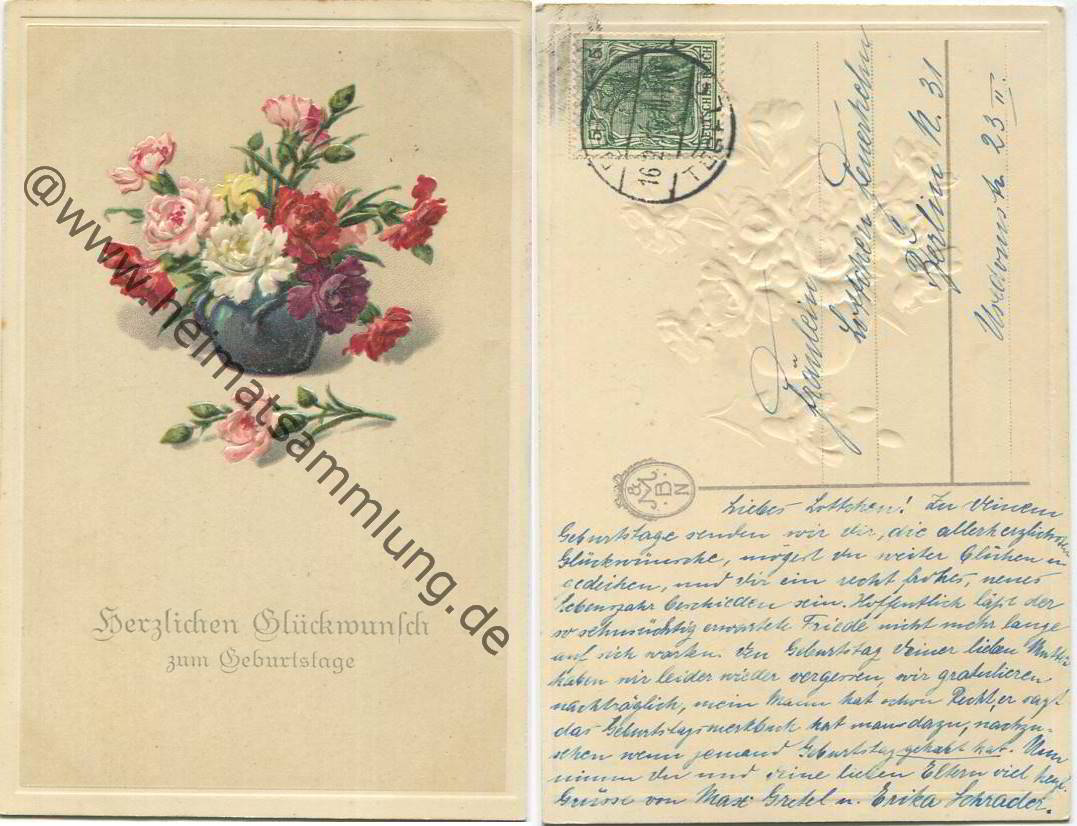 Herzlichen Glückwunsch
zum Geburtstage
@www.heimatsammlung.de
5 5
DEUTSCHES REICH
16
TEGEL
Fräulein
Lottchen
Berlin N. 31
23 II.
M. & B. N
Liebes Lottchen! Zu Deinem
Geburtstage senden wir dir, die allerherzlichsten
Glückwünsche, mögest du weiter blühen u
gedeihen, und dir ein recht frohes, neues
Lebensjahr beschieden sein. Hoffentlich läßt der
so sehnsüchtig erwartete Friede nicht mehr lange
auf sich warten. Den Geburtstag deiner lieben Mutti
haben wir leider wieder vergessen, wir gratulieren
nachträglich, mein Mann hat schon Recht, er sagt
das Geburtstagsmerkbuch hat man dazu, nachzu-
sehen wenn jemand Geburtstag gehabt hat. Nun
nimm du und deine lieben Eltern viel herzl.
Grüsse von Max Gretel u. Erika Schrader.